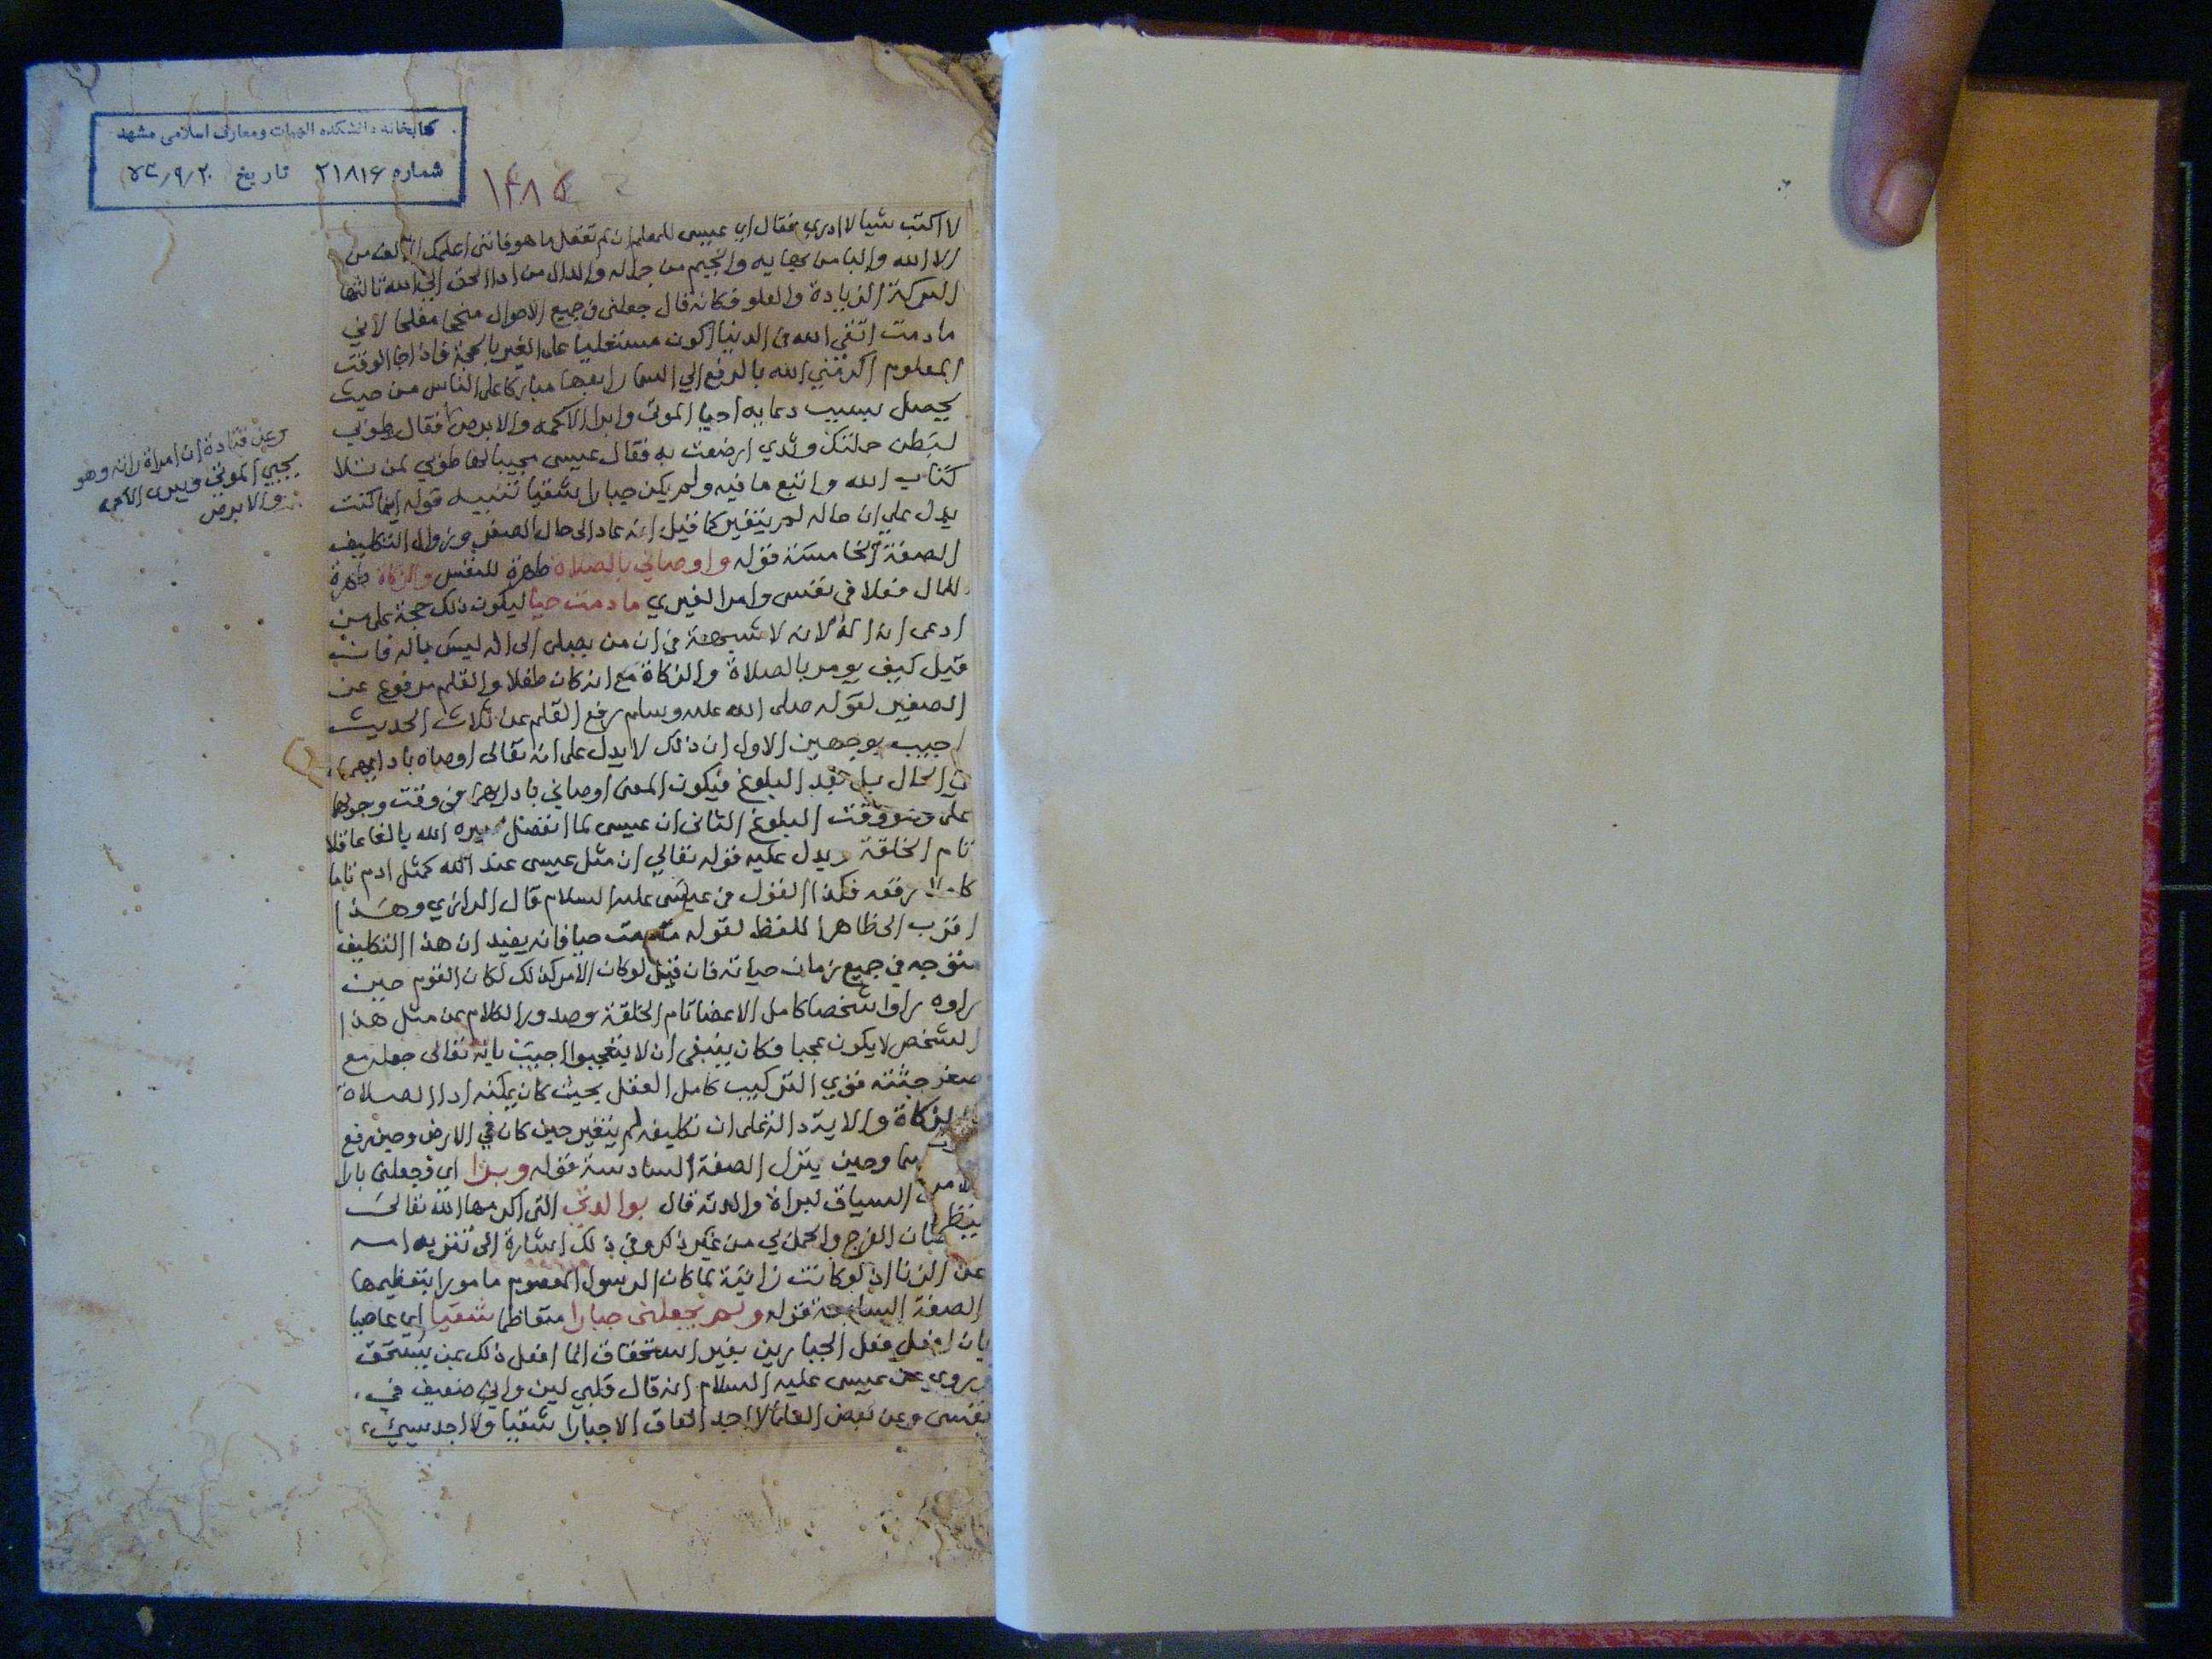 كتابخانه دانشكده الهيات ومعارف اسلامى مشهد
شماره ٢١٨١۶ تاريخ
لا اكتب شيا لا ادري فقال اي عيسى للمعلم ان لم تفعل ما هو فانني اعلمك الالف من
الا الله والبا من بهايه والجيم من جماله والدال من ادا الحق الي الله ثالثها
البركة الزيادة والعلو فكانه قال جعلنى في جميع الاحوال منجحا مفلحا لاني
ما دمت ابقى الله في الدنيا اكون مستعليا على الغير بالحجة فاذا جا الوقت
المعلوم اكرمني الله بالرفع الي السما رابعها مباركا على الناس من حيث
يحصل بسبب دعايه احيا الموتى وابرا الاكمه والابرص فقال طوبي
لبطن حملتك وثدي ارضعت به فقال عيسى مجيبا لها طوبي لمن تلا
كتاب الله واتبع ما فيه ولم يكن جبارا شقيا تنبيه قوله اينما كنت
يدل علي ان حاله لم يتغير كما قيل انه عاد الى حال الصغر وزوال التكليف
الصفة الخامسة قوله واوصاني بالصلاة طهرة للنفس والزكاة طهرة
للمال فعلا في نفسى وامرا لغيري ما دمت حيا ليكون ذلك حجة على من
ادعى انه اله لانه لا شبهة في ان من يصلى الى اله ليس باله فان
قيل كيف يومر بالصلاة والزكاة مع انه كان طفلا والقلم مرفوع عن
الصغير لقوله صلى الله عليه وسلم رفع القلم عن ثلاث الحديث
اجيب بوجهين الاول ان ذلك لا يدل على انه تعالى اوصاه بادايهما
في الحال بل بعد البلوغ فيكون المعنى اوصاني بادايهما في وقت وجوبهما
على وهو وقت البلوغ الثانى ان عيسى لما انفصل صيره الله بالغا عاقلا
تام الخلقة ويدل عليه قوله تعالي ان مثل عيسى عند الله كمثل ادم تاما
كاملا رفعه فكذا القول فى عيسى عليه السلام قال الرازي وهذا
اقرب الى ظاهر اللفظ لقوله ما دمت حيا فانه يفيد ان هذا التكليف
متوجه في جميع زمان حياته فان قيل لو كان الامر كذلك لكان القوم حين
راوه راوا شخصا كامل الاعضا تام الخلقة وصدور الكلام عن مثل هذا
الشخص لا يكون عجبا فكان ينبغى ان لا يتعجبوا اجيب بانه تعالى جعله مع
صغر جثته قوي التركيب كامل العقل بحيث كان يمكنه ادا الصلاة
والزكاة والاية دالة على ان تكليفه لم يتغير حين كان في الارض وحين رفع
وحين ينزل الصفة السادسة قوله وبرا اي وجعلنى بارا
السياق لبراة والدته قال بوالدتي التى اكرمها الله تعالى
الفرج والحمل بي من غير ذكر وفي ذلك اشارة الى تنزيه امه
عن الزنا اذ لو كانت زانية لما كان الرسول المعصوم مامورا بتعظيمها
الصفة السابعة قوله ولم يجعلنى جبارا متعاظما شقيا اي عاصيا
بان افعل فعل الجبارين بغير استحقاق انما افعل ذلك بمن يستحق
وروي عن عيسى عليه السلام انه قال قلبي لين واني ضعيف في
نفسى وعن بعض العلما لا اجد العاق الا جبارا شقيا ولا اجد سيئ
وعن قتادة ان امراة راته وهو
يحيي الموتى ويبرى الاكمه
والابرص